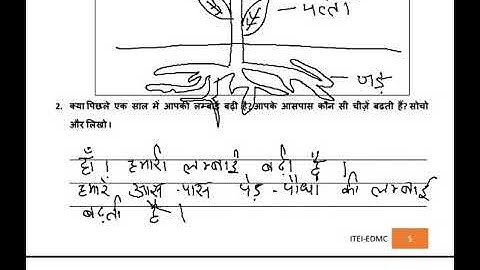 पत्ती
जड़ें
2. क्या पिछले एक साल में आपकी लम्बाई बढ़ी है? आपके आसपास कौन सी चीज़ें बढती हैं? सोचो
और लिखो।
हाँ। हमारी लम्बाई बढ़ी है।
हमारे आस-पास पेड़-पौधों की लम्बाई
बढ़ती है।
ITEI-EDMC 5